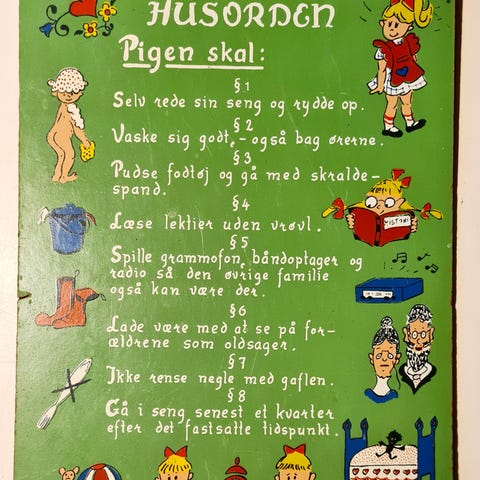 HUSORDEN
Pigen skal:
§ 1
Selv rede sin seng og rydde op.
§ 2
Vaske sig godt, - også bag ørerne.
§ 3
Pudse fodtøj og gå med skralde-
spand.
§ 4
Læse lektier uden vrøvl.
§ 5
Spille grammofon, båndoptager og
radio så den øvrige familie
også kan være der.
§ 6
Lade være med at se på for-
ældrene som oldsager.
§ 7
Ikke rense negle med gaflen.
§ 8
Gå i seng senest et kvarter
efter det fastsatte tidspunkt.